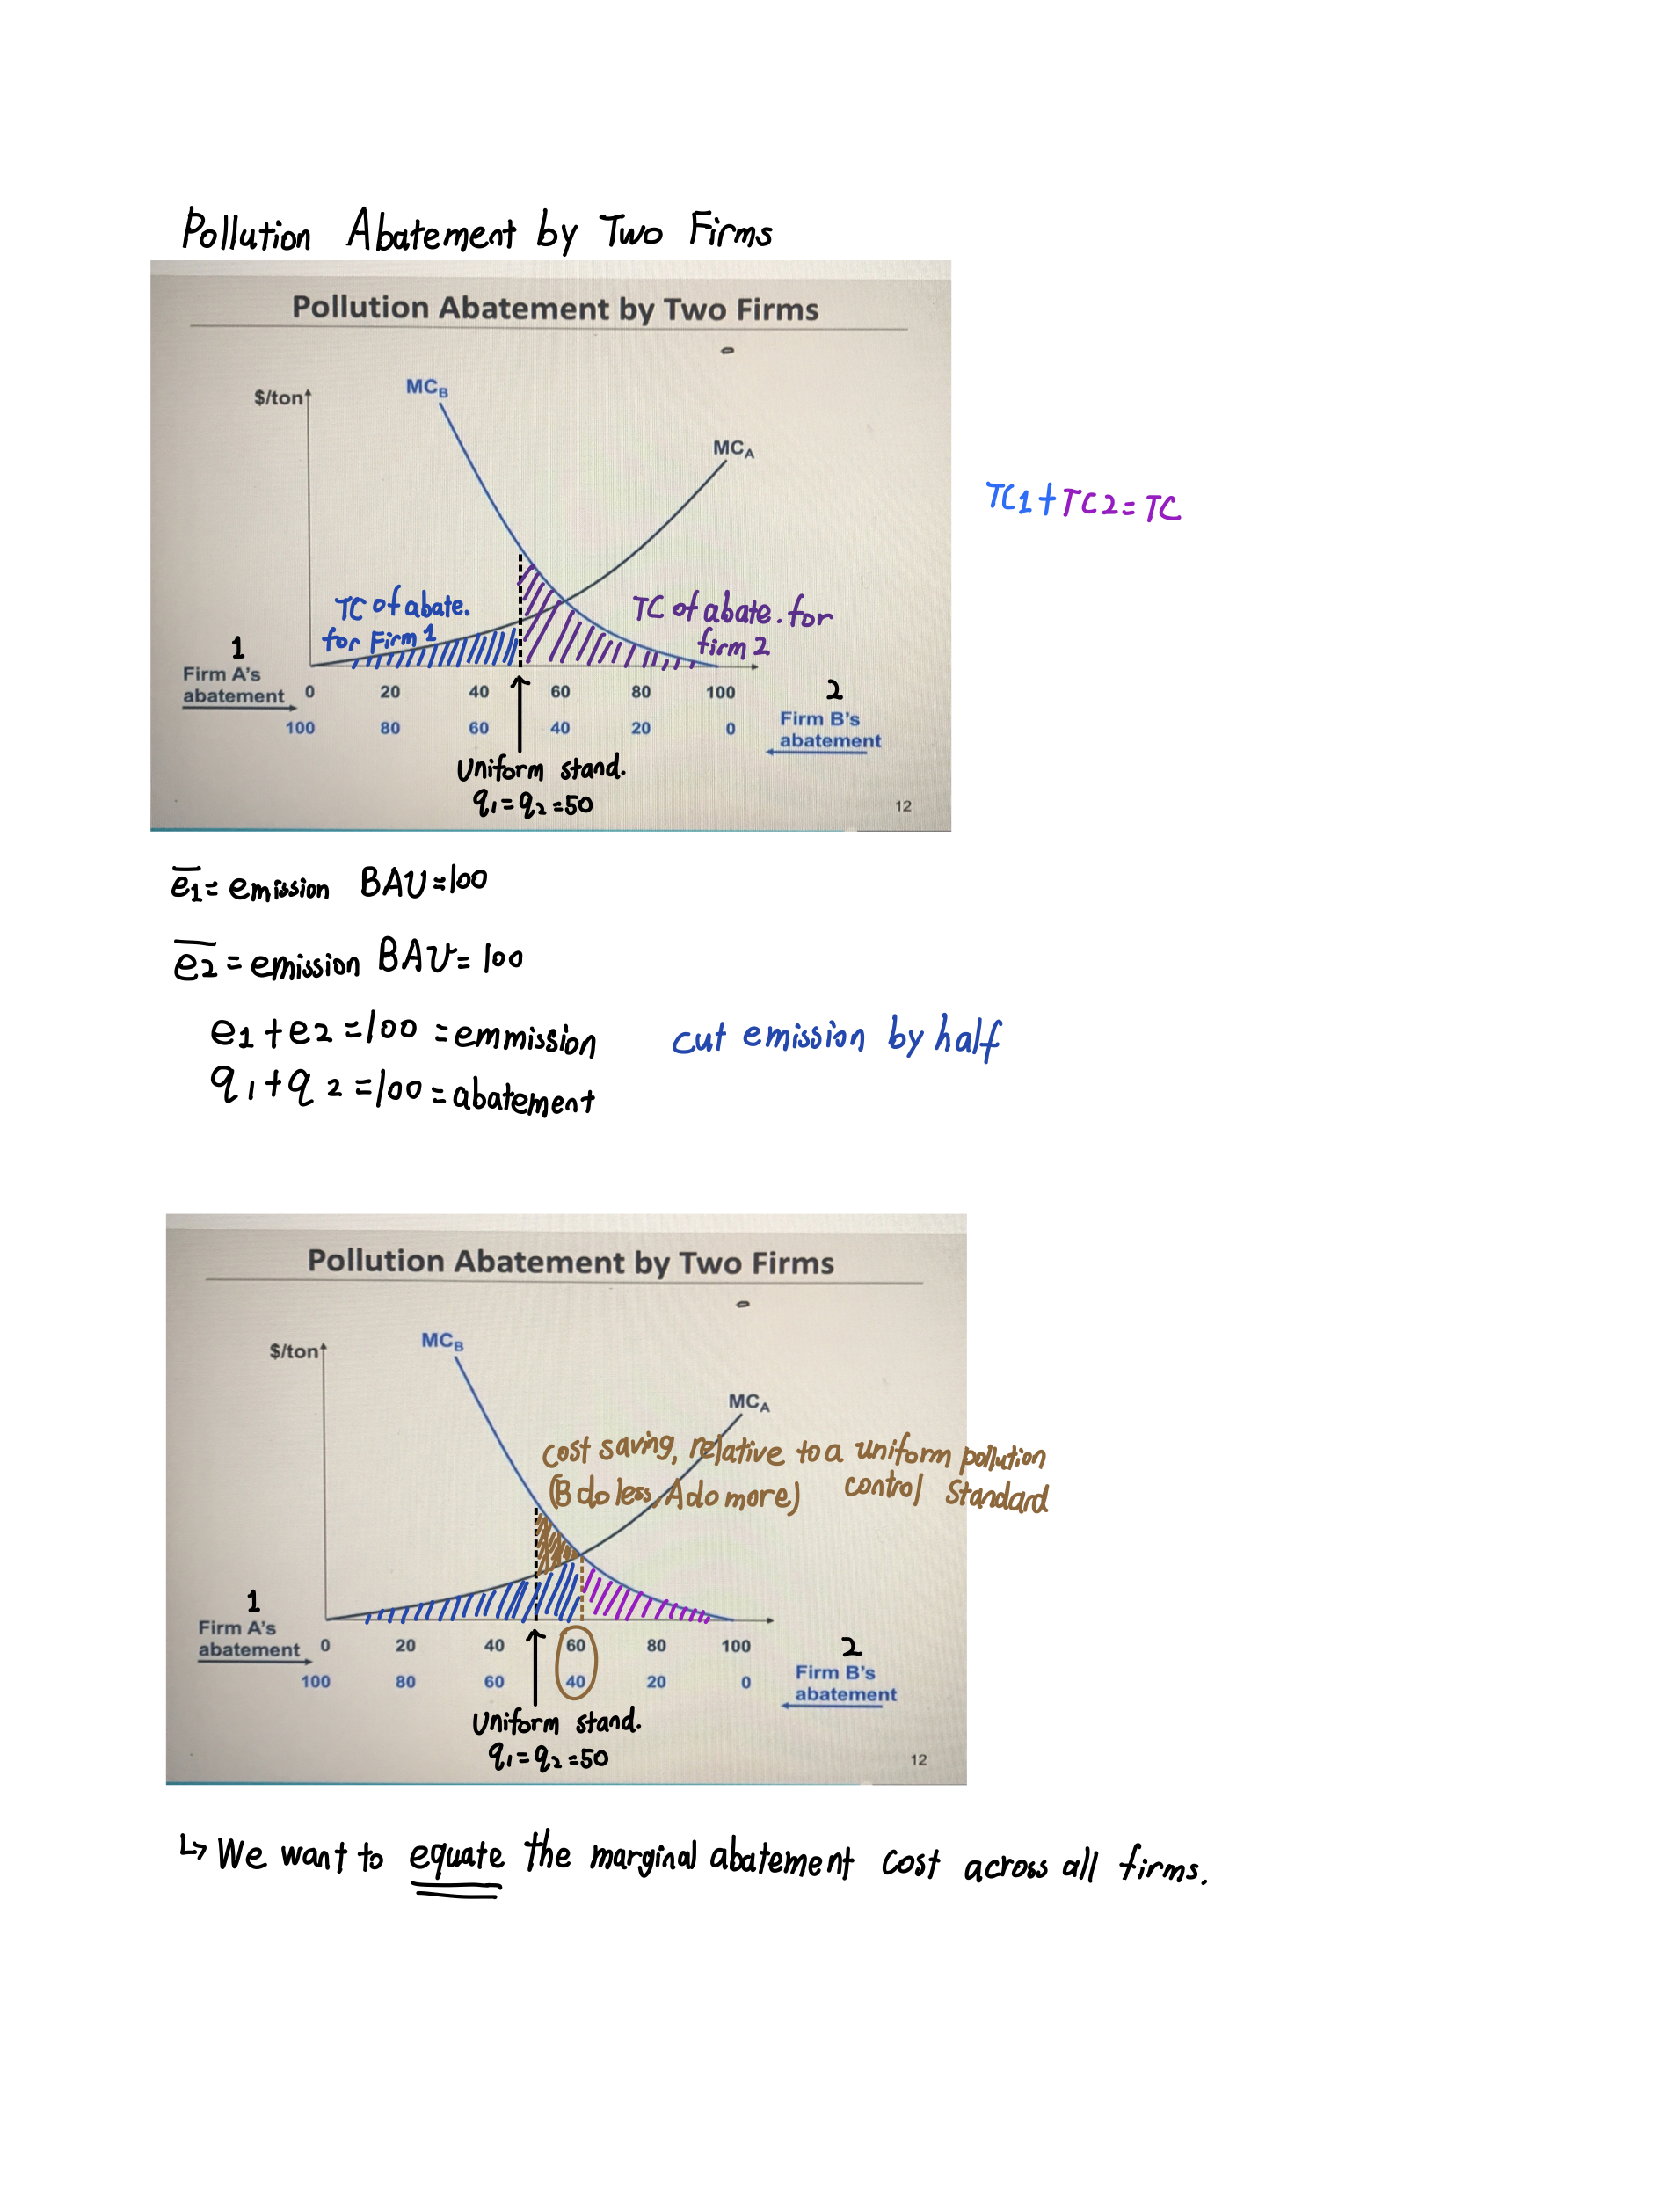 Pollution Abatement by Two Firms
Pollution Abatement by Two Firms
$/ton
MCB
MCA
TC1+TC2=TC
TC of abate.
for Firm 1
TC of abate. for
firm 2
1
Firm A's
abatement
0 20 40 60 80 100
100 80 60 40 20 0
2
Firm B's
abatement
Uniform stand.
q1=q2=50
12
e1= emission BAU=100
e2= emission BAU=100
e1+e2=100=emmission
cut emission by half
q1+q2=100=abatement
Pollution Abatement by Two Firms
$/ton
MCB
MCA
cost saving, relative to a uniform pollution
(B do less, A do more) control standard
1
Firm A's
abatement
0 20 40 60 80 100
100 80 60 40 20 0
2
Firm B's
abatement
Uniform stand.
q1=q2=50
12
↳ We want to equate the marginal abatement cost across all firms.